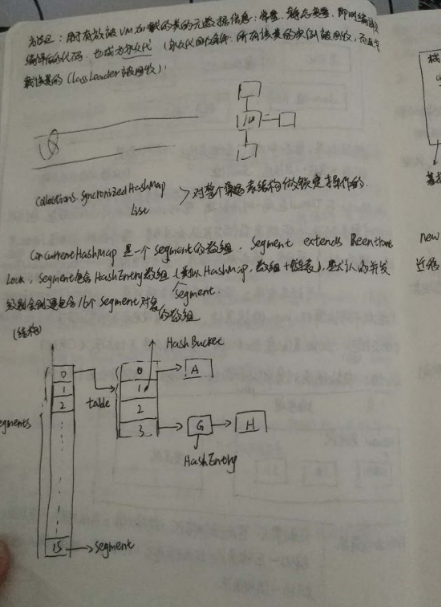 方法区：用于存放被VM加载的类的元数据信息：常量、静态变量、即时编译
编译后的代码。也成为永久代（永久代回收条件，所有该类的实例被回收，
该类的ClassLoader被回收）
I/O
Collections.SyncronizedHashMap
list
对整个 表结构做锁定操作的
ConcurrentHashMap 是一个 Segment的数组，Segment extends Reentrant
Lock，Segment包含HashEntry数组（类似HashMap，数组+链表），默认的并发
级别会创建包含16个 segment 对象的数组
Segment
(结构)
HashBucket
0
1
2
15
segments
segment
table
0
1
2
3
A
G
H
HashEntry
new